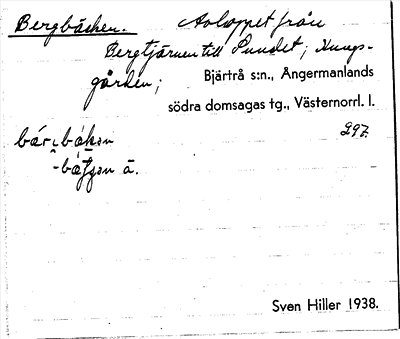 Bergbäcken. Avloppet från
Bergtjärnen till Sundet; Kungs-
gården; Bjärtrå s:n., Ångermanlands
södra domsagas tg., Västernorrl. l.
297.
Sven Hiller 1938.